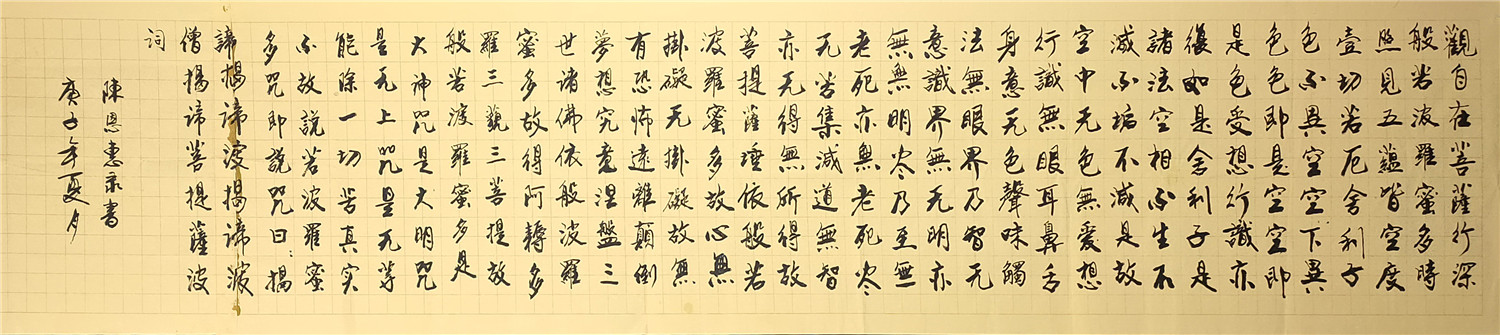 觀自在菩薩行深
般若波羅蜜多時
照見五蘊皆空度
壹切若厄舍利子
色不異空空下異
色色即是空空即
是色受想行識亦
復如是舍利子是
諸法空相不生不
滅不垢不減是故
空中无色無爱想
行識無眼耳鼻舌
身意无色聲味觸
法無眼界乃智无
意識界無无明亦
無無明尽乃至無
老死亦無老死尽
无苦集滅道無智
亦无得無所得故
菩提薩埵依般若
波羅蜜多故心無
掛礙无掛礙故無
有恐怖遠離顛倒
夢想究竟涅盤三
世诸佛依般波羅
蜜多故得阿耨多
羅三藐三菩提故
般若波羅蜜多是
大神咒是大明咒
是无上咒是无等
能除一切苦真实
不故説若波羅蜜
多咒即說咒曰：揭
諦揭諦波揭諦波
僧揭諦菩提薩波
詞
陳恩惠录書
庚子年夏月